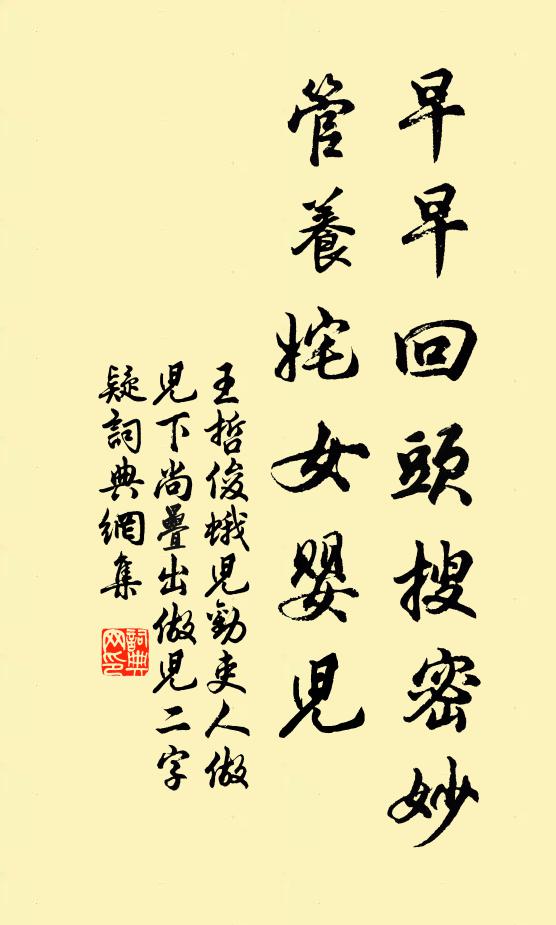 早早回頭搜密妙
管養姹女嬰兒
王哲俊蛾児勸吏人做
児下尚疊出做児二字
疑詞典網集
詞典网印